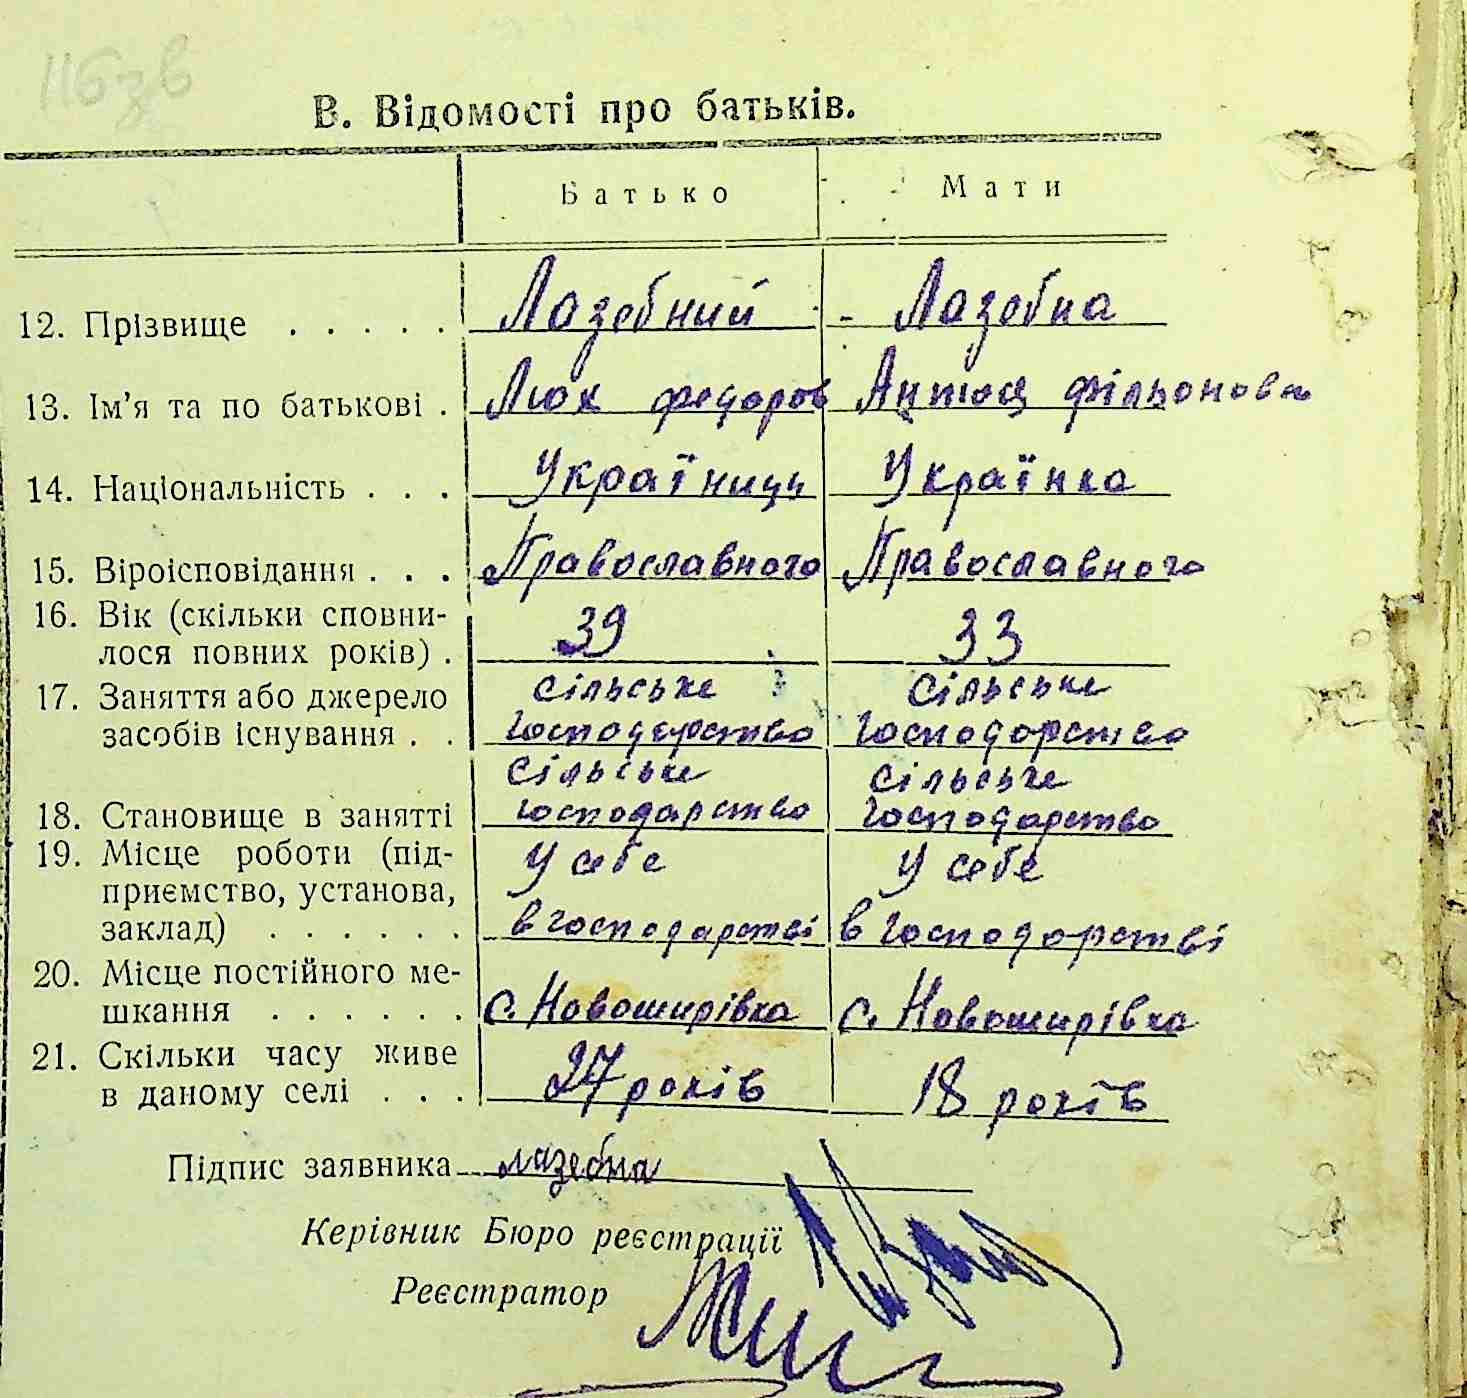 116зв
В. Відомості про батьків.
Батько Мати
12. Прізвище . . . . . Лазебний Лазебна
13. Ім'я та по батькові . Люх федоров Антося фільонови
14. Національність . . . Україниць Українка
15. Віроісповідання . . . Православного Православного
16. Вік (скільки сповни-
лося повних років) . 39 33
17. Заняття або джерело сільське сільське
засобів існування . . господарство господарство
сільське сільське
18. Становище в занятті господарство господарство
19. Місце роботи (під- У себе У себе
приємство, установа,
заклад) . . . . . . в господарстві в господарстві
20. Місце постійного ме-
шкання . . . . . . с. Новоширівка с. Новоширівка
21. Скільки часу живе
в даному селі . . . 27 років 18 років
Підпис заявника лазебна
Керівник Бюро реєстрації
Реєстратор